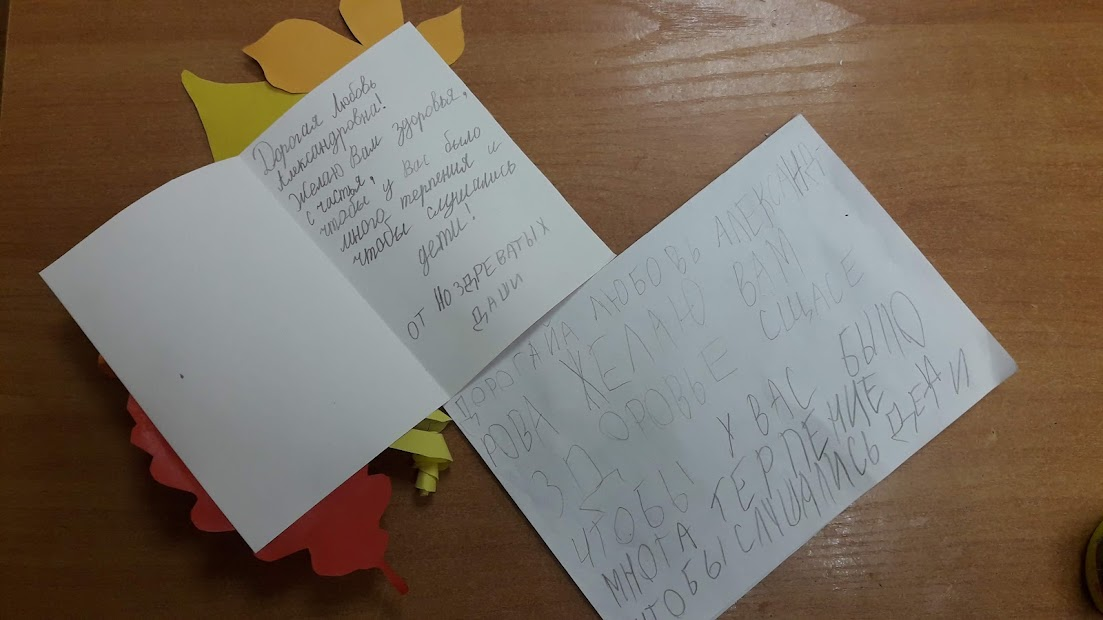 Дорогая Любовь
Александровна!
Желаю Вам здоровья,
счастья,
чтобы у Вас было
много терпения и
чтобы слушались
дети!
ОТ НОЗДРЕВАТЫХ
ДАШИ
ДОРОГАЙА ЛЮБОВЬ АЛЕКСАНД-
РОВА ЖЕЛАЮ ВАМ
ЗДОРОВЬЕ СЩАСЕ
ЧТОБЫ Х ВАС БЫЛО
МНОГА ТЕРПЕНИЕ
ЧТОБЫ СЛУШАЛИСЬ